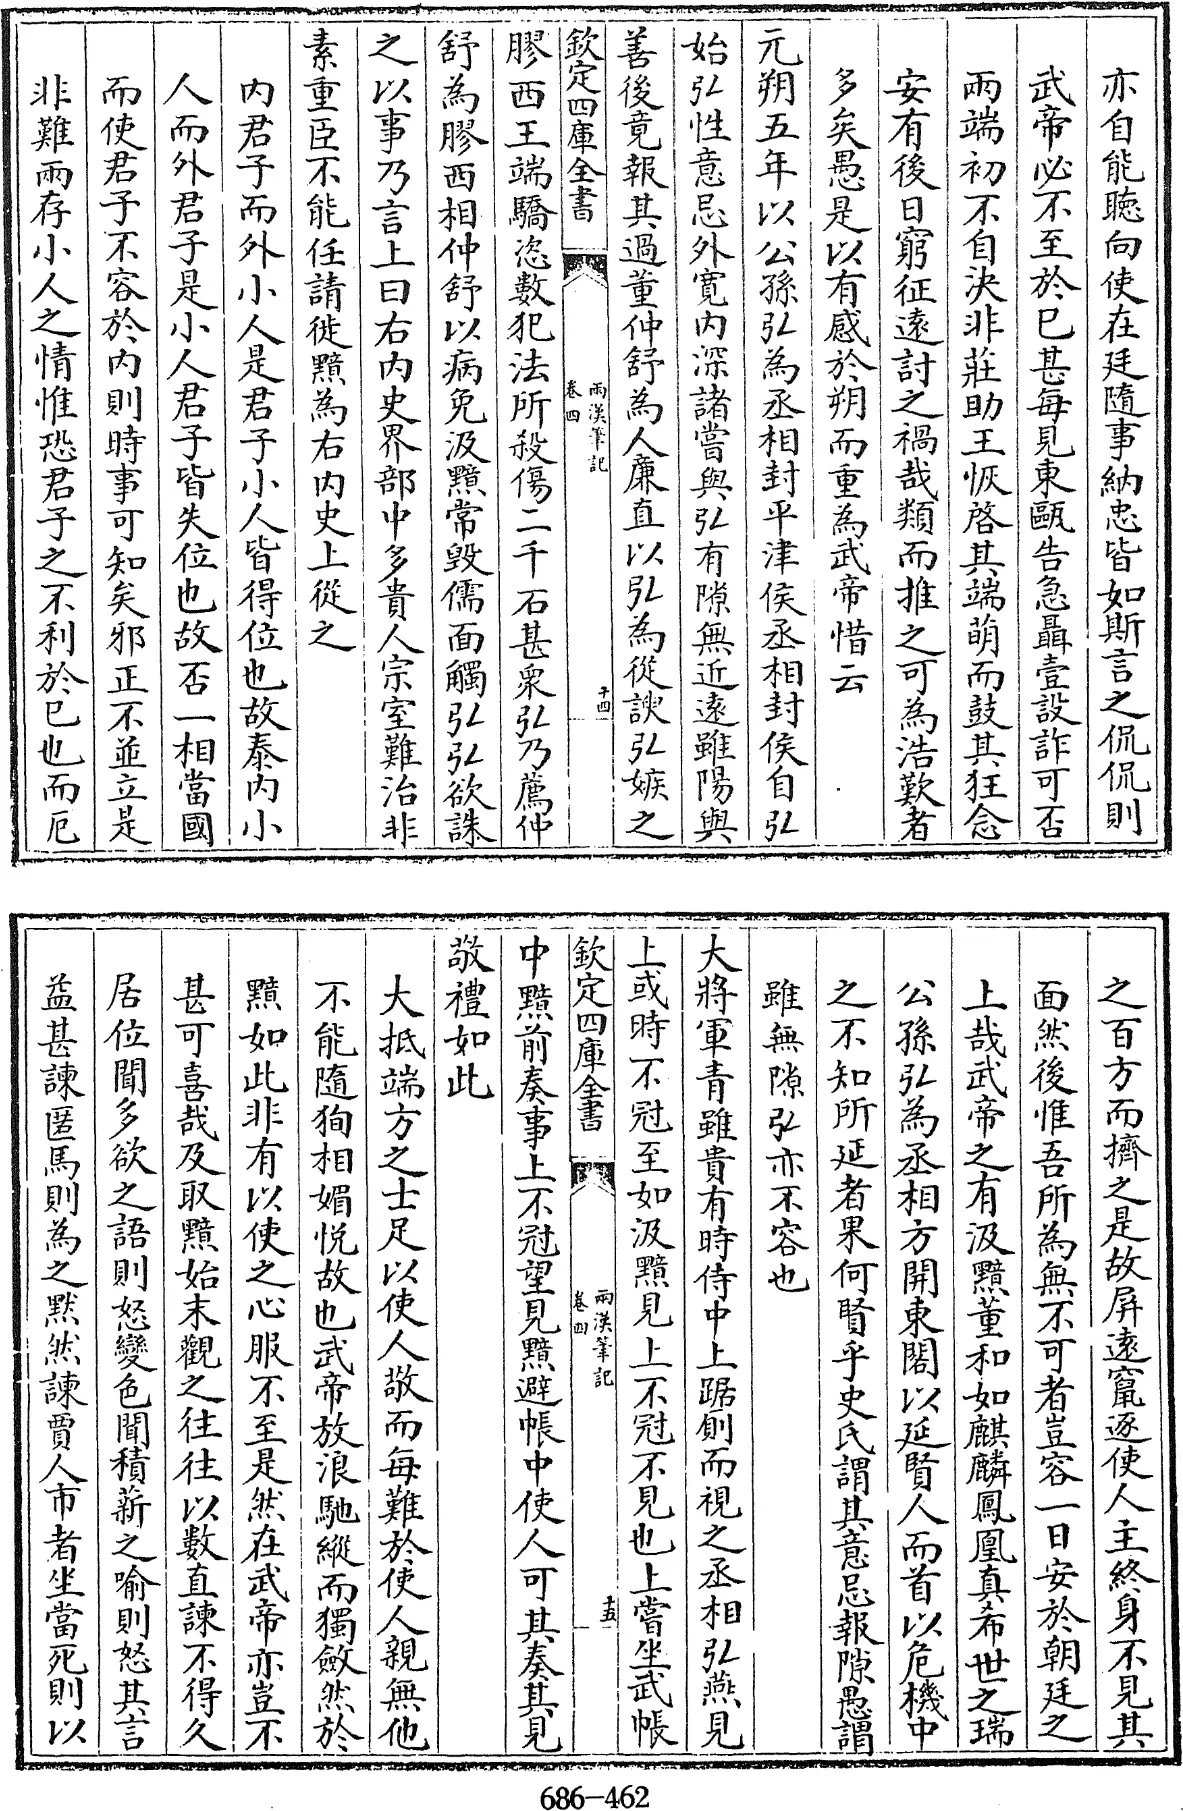 亦自能聽向使在廷隨事納忠皆如斯言之侃侃則
武帝必不至於已甚每見東甌告急聶壹設詐可否
兩端初不自決非莊助王恢啓其端萌而鼓其狂念
安有後日窮征遠討之禍哉類而推之可為浩歎者
多矣愚是以有感於朔而重為武帝惜云
元朔五年以公孫弘為丞相封平津侯丞相封侯自弘
始弘性意忌外寛内深諸嘗與弘有隙無近遠雖陽與
善後竟報其過董仲舒為人廉直以弘為從諛弘嫉之
欽定四庫全書
兩漢筆記
卷四
十四
膠西王端驕恣數犯法所殺傷二千石甚衆弘乃薦仲
舒為膠西相仲舒以病免汲黯常毀儒面觸弘弘欲誅
之以事乃言上曰右内史界部中多貴人宗室難治非
素重臣不能任請徙黯為右内史上從之
内君子而外小人是君子小人皆得位也故泰内小
人而外君子是小人君子皆失位也故否一相當國
而使君子不容於内則時事可知矣邪正不並立是
非難兩存小人之情惟恐君子之不利於已也而厄
之百方而擠之是故屏遠竄逐使人主終身不見其
面然後惟吾所為無不可者豈容一日安於朝廷之
上哉武帝之有汲黯董和如麒麟鳳凰真希世之瑞
公孫弘為丞相方開東閣以延賢人而首以危機中
之不知所延者果何賢乎史氏謂其意忌報隙愚謂
雖無隙弘亦不容也
大將軍青雖貴有時侍中上踞廁而視之丞相弘燕見
上或時不冠至如汲黯見上不冠不見也上嘗坐武帳
欽定四庫全書
兩漢筆記
卷四
十五
中黯前奏事上不冠望見黯避帳中使人可其奏其見
敬禮如此
大抵端方之士足以使人敬而每難於使人親無他
不能隨狥相媚悦故也武帝放浪馳縱而獨斂然於
黯如此非有以使之心服不至是然在武帝亦豈不
甚可喜哉及取黯始末觀之往往以數直諫不得久
居位聞多欲之語則怒變色聞積薪之喻則怒其言
益甚諫匿馬則為之黙然諫賈人市者坐當死則以
686-462